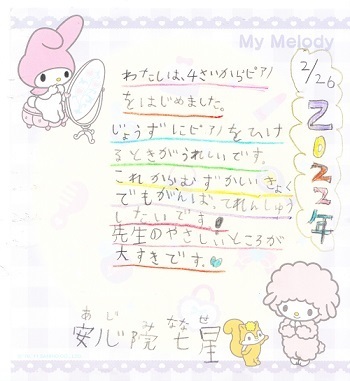 My Melody
2/26
2022年
わたしは、4さいからピアノ
をはじめました。
じょうずにピアノをひけ
るときがうれしいです。
これからむずかしいきょく
でもがんばってれんしゅう
したいです!
先生のやさしいところが
大すきです。
あじ み ななせ
安心院 七星